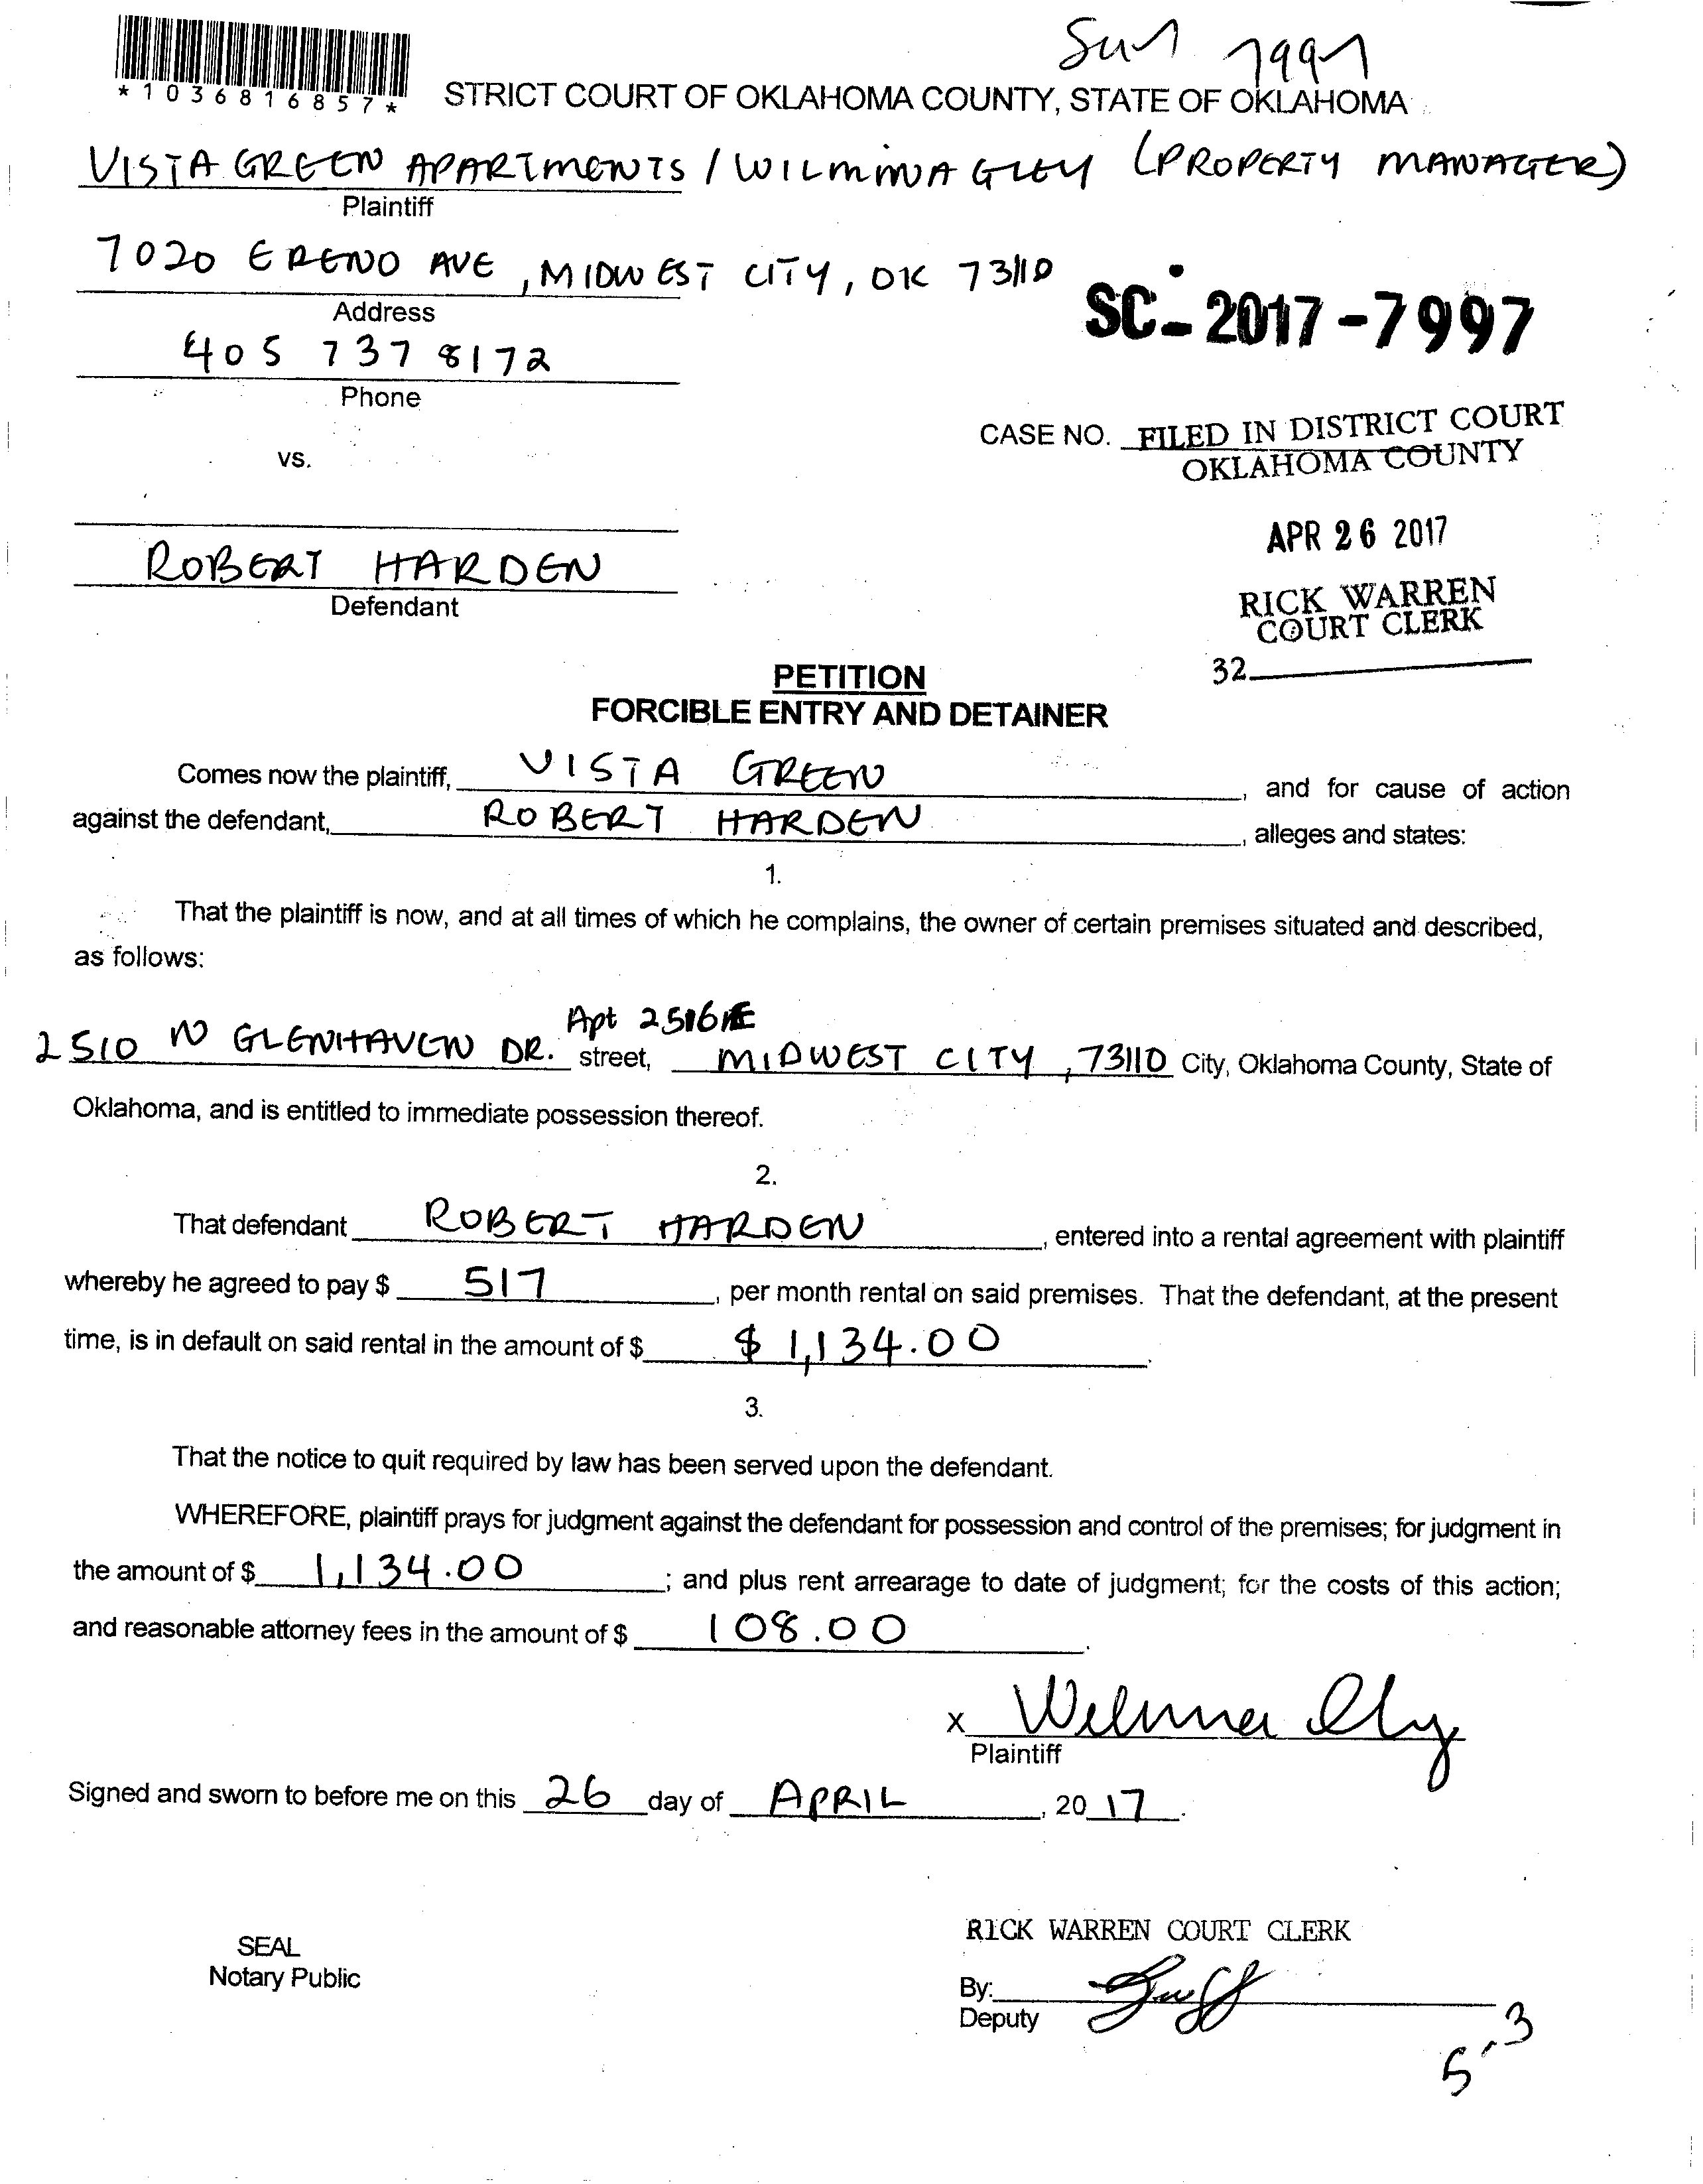 7997
*1036816857*
STRICT COURT OF OKLAHOMA COUNTY, STATE OF OKLAHOMA
VISTA GREEN APARTMENTS / (PROPERTY MANAGER)
Plaintiff
7020 E RENO AVE, MIDWEST CITY, OK 73110
Address
SC-2017-7997
405 737 8172
Phone
CASE NO. FILED IN DISTRICT COURT
OKLAHOMA COUNTY
vs.
APR 26 2017
ROBERT HARDEN
Defendant
RICK WARREN
COURT CLERK
32
PETITION
FORCIBLE ENTRY AND DETAINER
Comes now the plaintiff, VISTA GREEN, and for cause of action
against the defendant, ROBERT HARDEN, alleges and states:
1.
That the plaintiff is now, and at all times of which he complains, the owner of certain premises situated and described,
as follows:
Apt
2510 N GLENHAVEN DR. street, MIDWEST CITY, 73110 City, Oklahoma County, State of
Oklahoma, and is entitled to immediate possession thereof.
2.
That defendant ROBERT HARDEN, entered into a rental agreement with plaintiff
whereby he agreed to pay $ 517, per month rental on said premises. That the defendant, at the present
time, is in default on said rental in the amount of $ $1,134.00.
3.
That the notice to quit required by law has been served upon the defendant.
WHEREFORE, plaintiff prays for judgment against the defendant for possession and control of the premises; for judgment in
the amount of $ 1,134.00; and plus rent arrearage to date of judgment; for the costs of this action;
and reasonable attorney fees in the amount of $ 108.00.
X
Plaintiff
Signed and sworn to before me on this 26 day of APRIL, 2017.
RICK WARREN COURT CLERK
SEAL
Notary Public
By:
Deputy
5-3